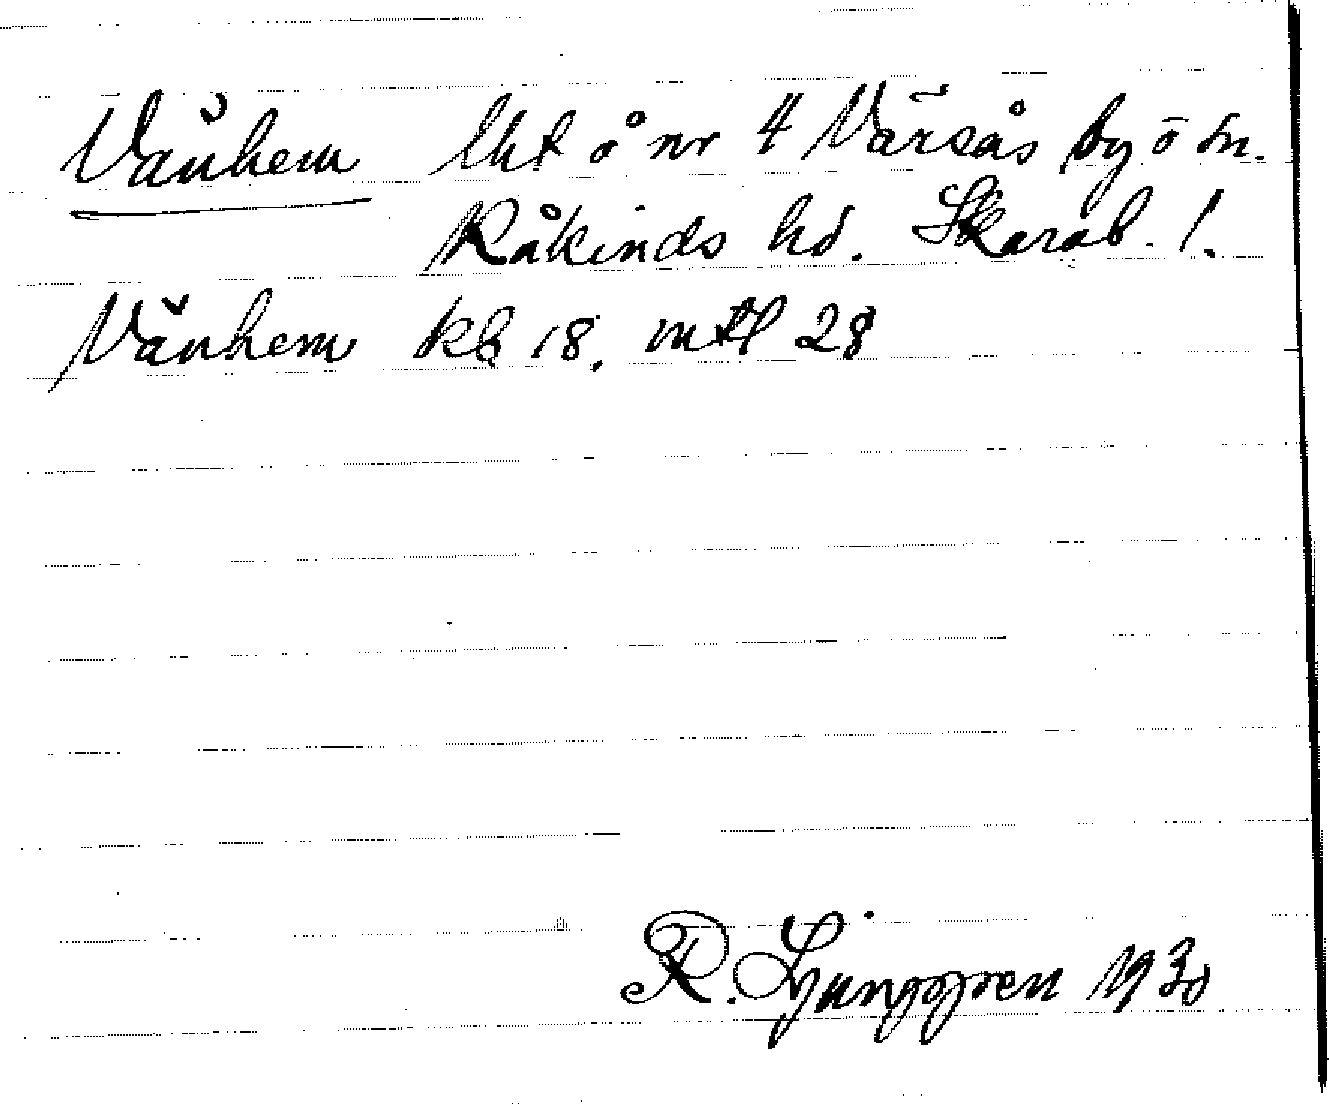 Vånhem lht å nr 4 Värsås by ö sn.
Kåkinds hd. Skarab. l.
Vånhem kb 18. mtl 28
R. Ljunggren 1930